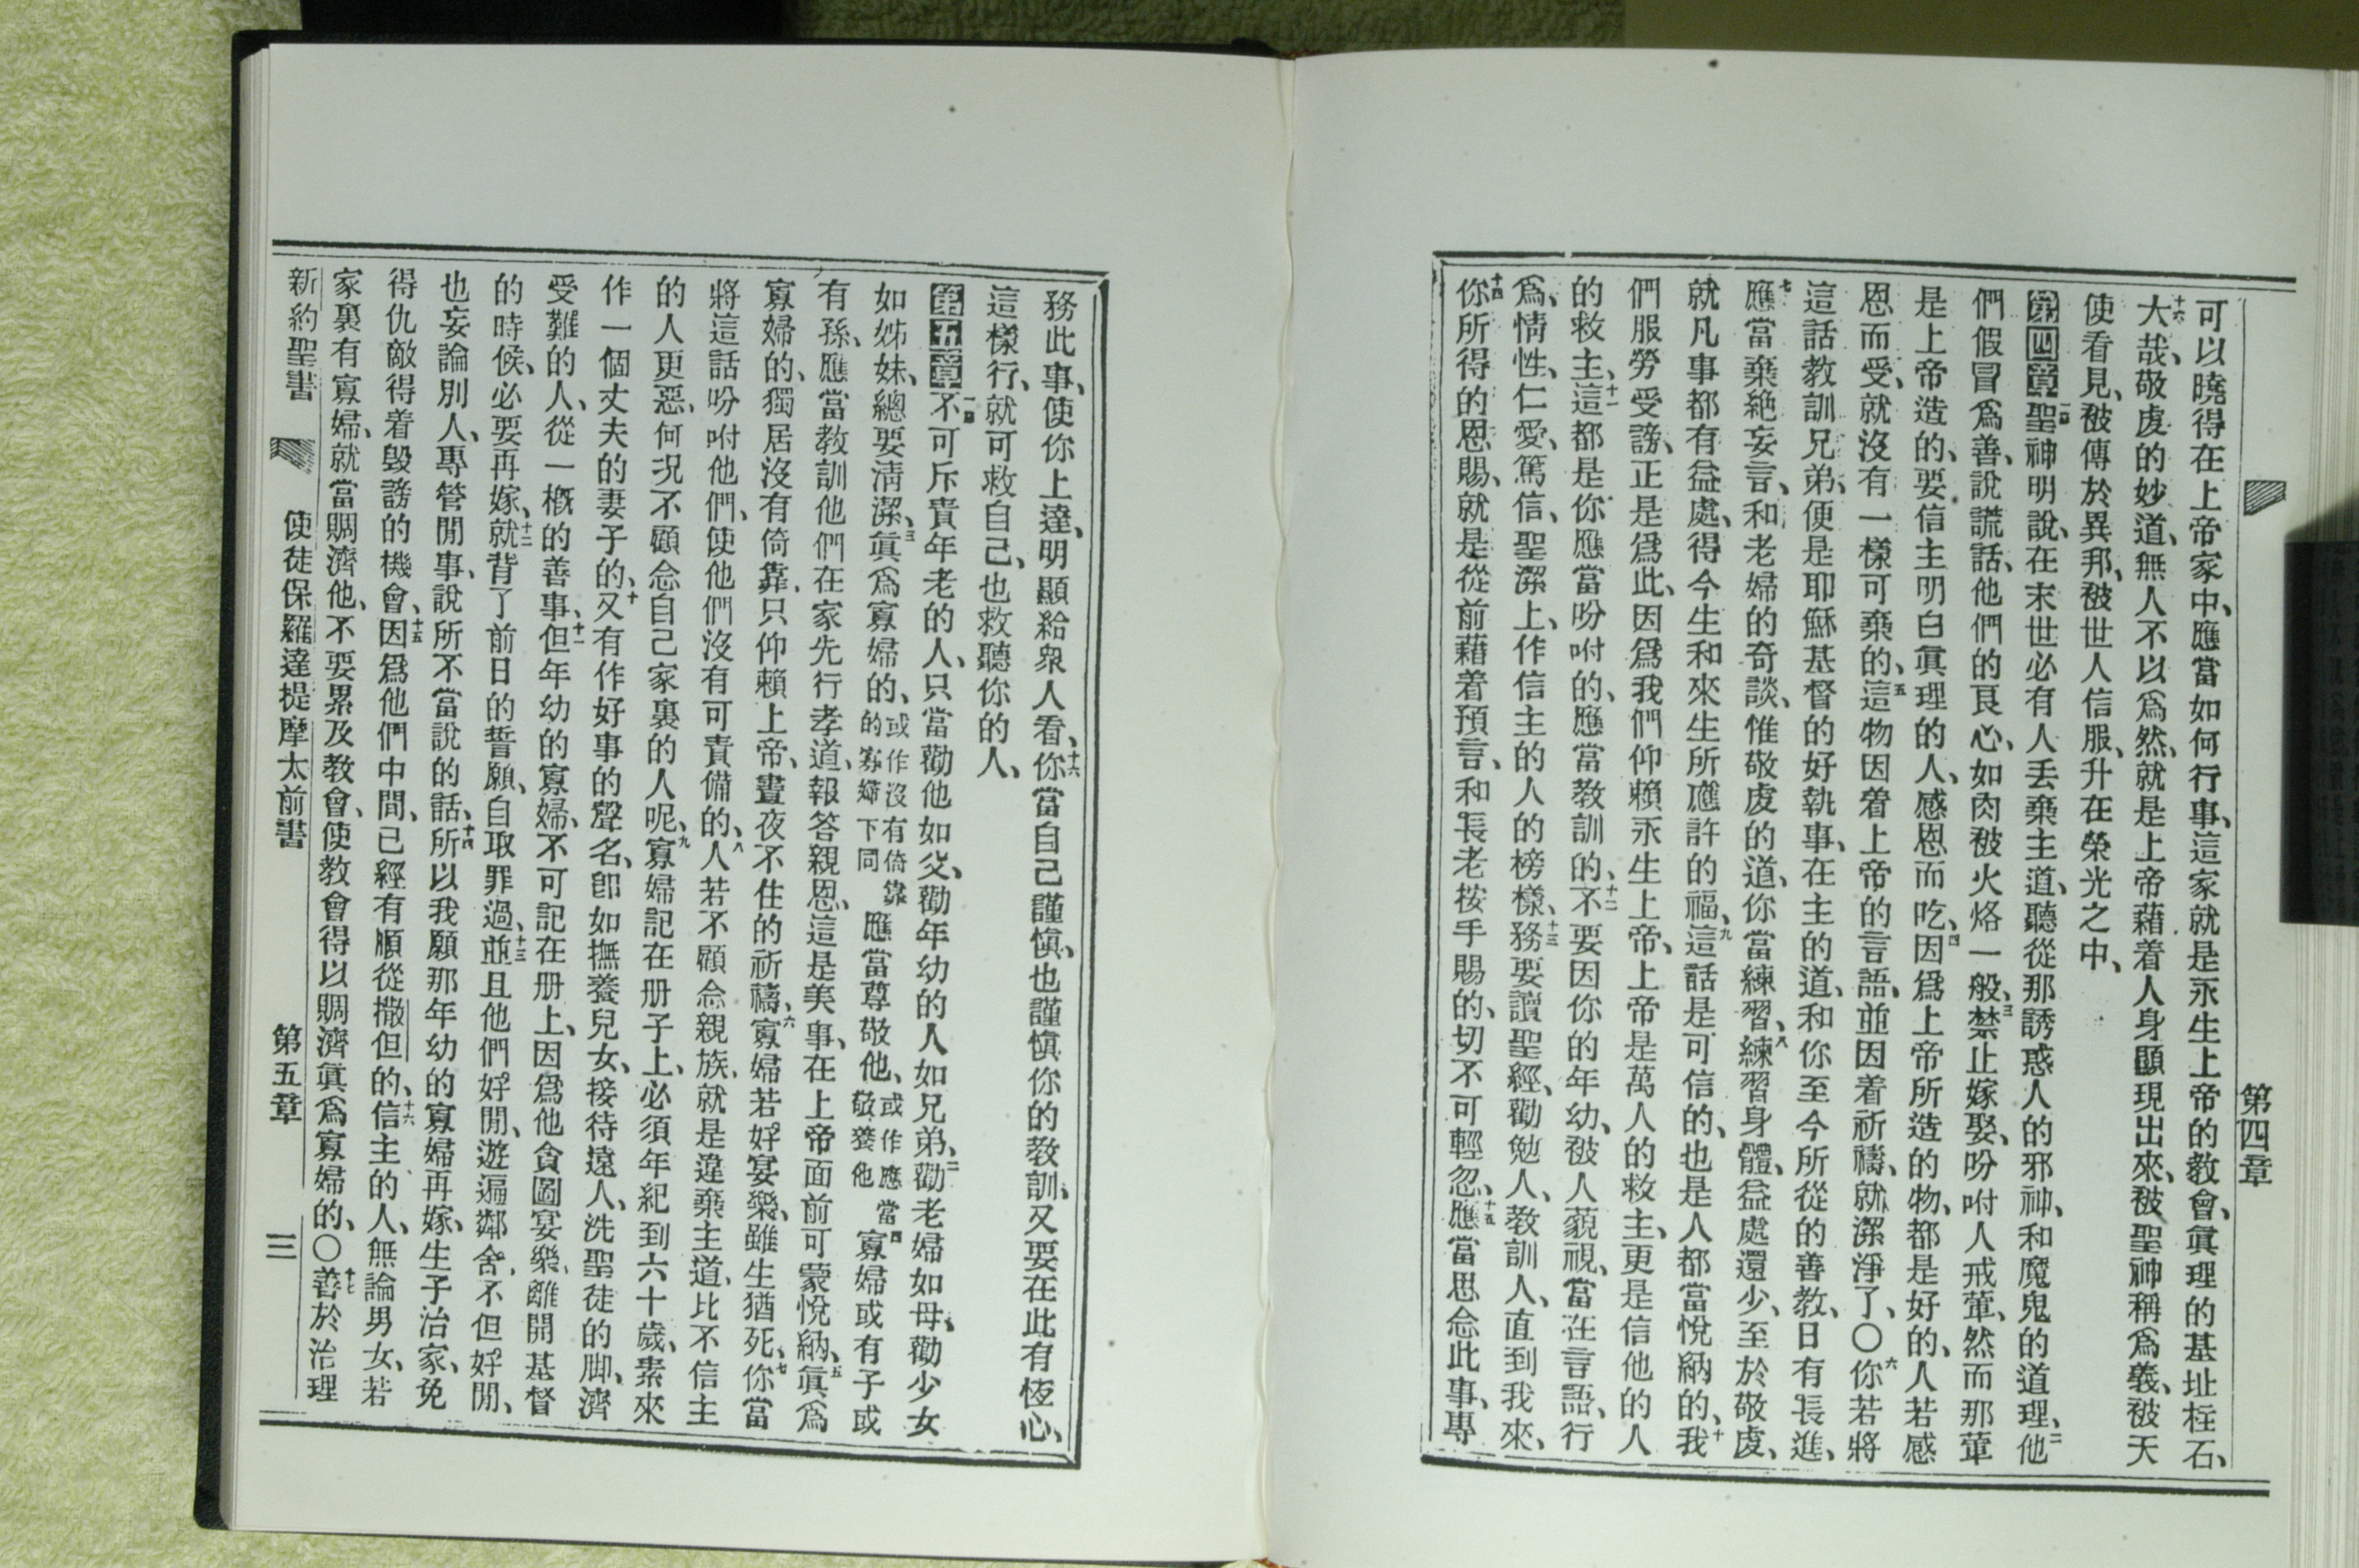 第四章
可以曉得在上帝家中、應當如何行事、這家就是永生上帝的教會、眞理的基址柱石、
十六大哉、敬虔的妙道、無人不以爲然、就是上帝藉着人身顯現出來、被聖神稱爲義、被天
使看見、被傳於異邦、被世人信服、升在榮光之中、
第四章一節聖神明說、在末世必有人丟棄主道、聽從那誘惑人的邪神、和魔鬼的道理、二他
們假冒爲善、說謊話、他們的良心、如肉被火烙一般、三禁止嫁娶、吩咐人戒葷、然而那葷
是上帝造的、要信主明白眞理的人、感恩而吃、四因爲上帝所造的物、都是好的、人若感
恩而受、就沒有一樣可棄的、五這物因着上帝的言語、並因着祈禱、就潔淨了、〇六你若將
這話教訓兄弟、便是耶穌基督的好執事、在主的道、和你至今所從的善教、日有長進、
七應當棄絕妄言、和老婦的奇談、惟敬虔的道、你當練習、八練習身體、益處還少、至於敬虔、
就凡事都有益處、得今生和來生所應許的福、九這話是可信的、也是人都當悅納的、十我
們服勞受謗、正是爲此、因爲我們仰賴永生上帝、上帝是萬人的救主、更是信他的人
的救主、十一這都是你應當吩咐的、應當教訓的、十二不要因你的年幼、被人藐視、當在言語、行
爲、情性、仁愛、篤信、聖潔上、作信主的人的榜樣、十三務要讀聖經、勸勉人、教訓人、直到我來、
十四你所得的恩賜、就是從前藉着預言、和長老按手賜的、切不可輕忽、十五應當思念此事、專
務此事、使你上達、明顯給衆人看、十六你當自己謹愼、也謹愼你的教訓、又要在此有恆心、
這樣行、就可救自己、也救聽你的人、
第五章一節不可斥責年老的人、只當勸他如父、勸年幼的人如兄弟、二勸老婦如母、勸少女
如姊妹、總要淸潔、三眞爲寡婦的、或作沒有倚靠的寡婦下同應當尊敬他、或作應當敬養他四寡婦或有子或
有孫、應當教訓他們在家先行孝道、報答親恩、這是美事、在上帝面前可蒙悅納、五眞爲
寡婦的、獨居沒有倚靠、只仰賴上帝、晝夜不住的祈禱、六寡婦若好宴樂、雖生猶死、七你當
將這話吩咐他們、使他們沒有可責備的、八人若不顧念親族、就是違棄主道、比不信主
的人更惡、何況不顧念自己家裏的人呢、九寡婦記在册子上、必須年紀到六十歲、素來
作一個丈夫的妻子的、十又有作好事的聲名、卽如撫養兒女、接待遠人、洗聖徒的脚、濟
受難的人、從一槪的善事、十一但年幼的寡婦、不可記在册上、因爲他貪圖宴樂、離開基督
的時候、必要再嫁、十二就背了前日的誓願、自取罪過、十三並且他們好閒、遊遍鄰舍、不但好閒、
也妄論別人、專管閒事、說所不當說的話、十四所以我願那年幼的寡婦再嫁、生子治家、免
得仇敵得着毀謗的機會、十五因爲他們中間、已經有順從撒但的、十六信主的人、無論男女、若
家裏有寡婦、就當賙濟他、不要累及教會、使教會得以賙濟眞爲寡婦的、〇十七善於治理
新約聖書 使徒保羅達提摩太前書 第五章 三